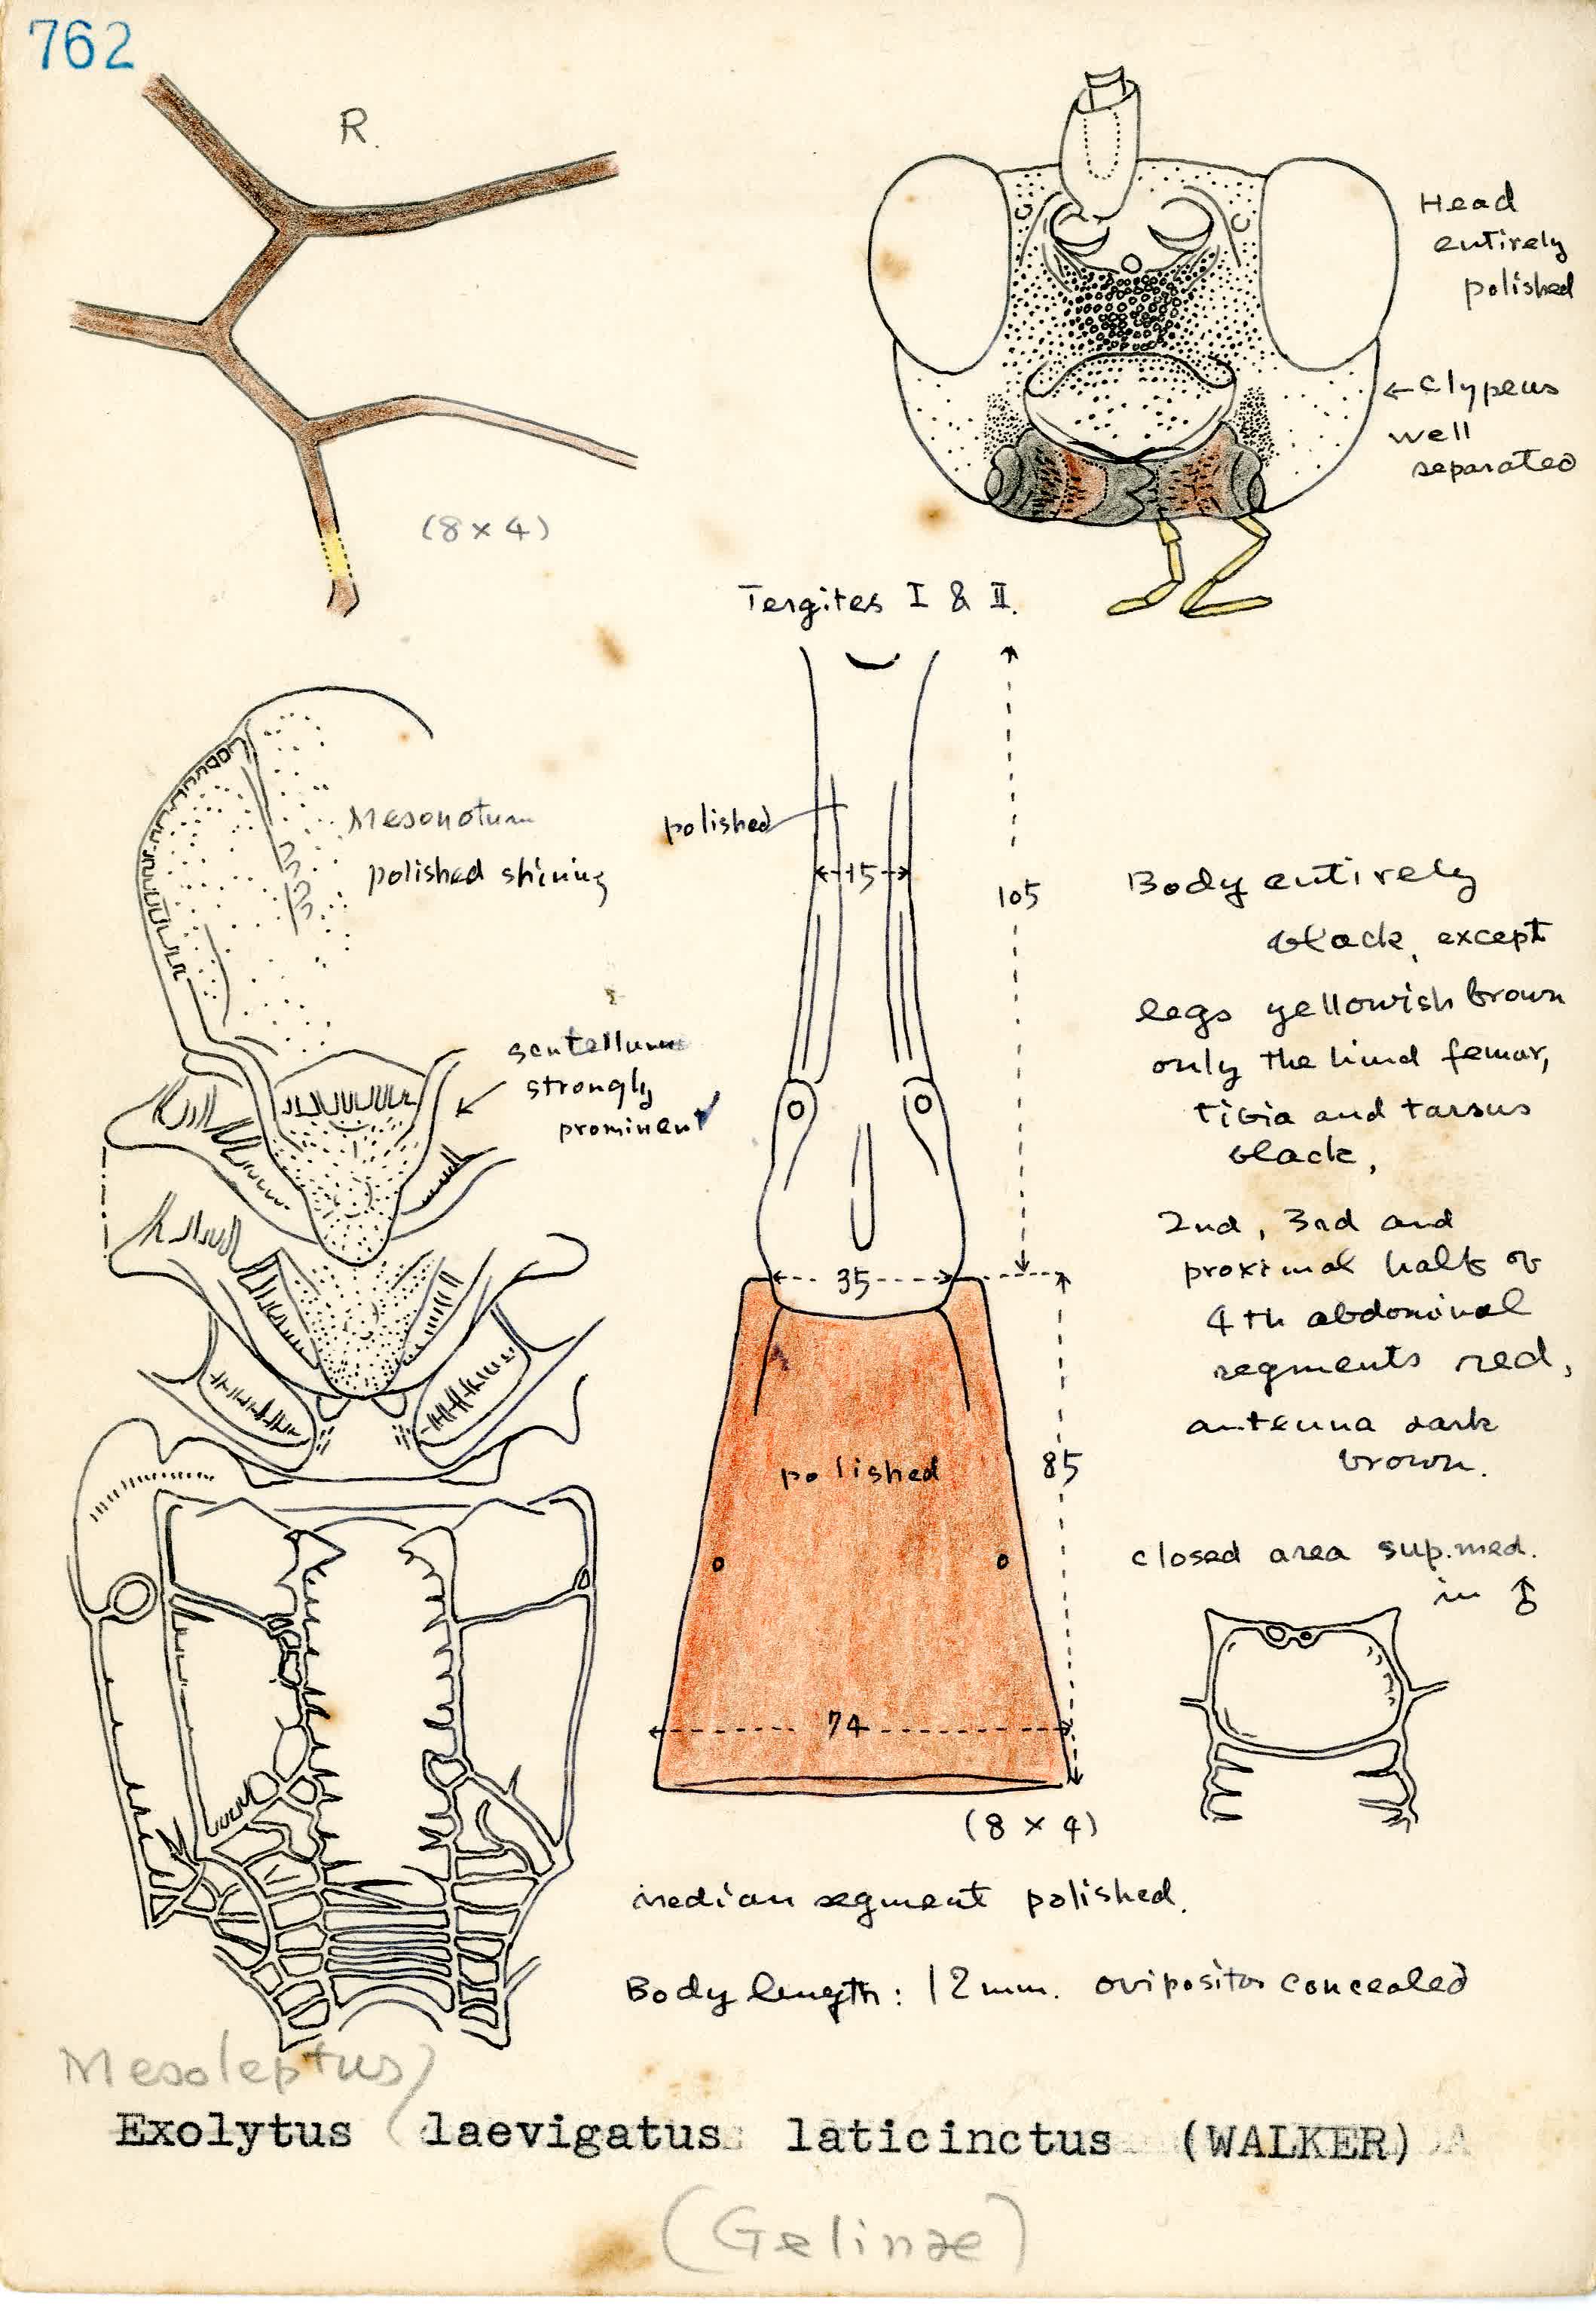 762
R.
(8 x 4)
Head
entirely
polished
← Clypeus
well
separated
Tergites I & II.
polished
15
105
Mesonotum
polished shining
scutellum
strongly
prominent
35
polished
85
74
(8 x 4)
Body entirely
black, except
legs yellowish brown
only the hind femur,
tibia and tarsus
black,
2nd, 3rd and
proximal half of
4th abdominal
segments red,
antenna dark
brown.
closed area sup. med.
in ♂
median segment polished.
Body length: 12 mm. ovipositor concealed
Mesoleptus
Exolytus laevigatus laticinctus (WALKER)
(Gelinae)